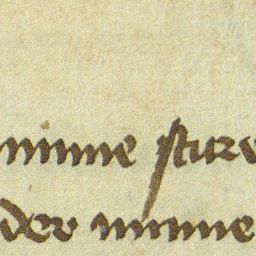 minne sture
der minne